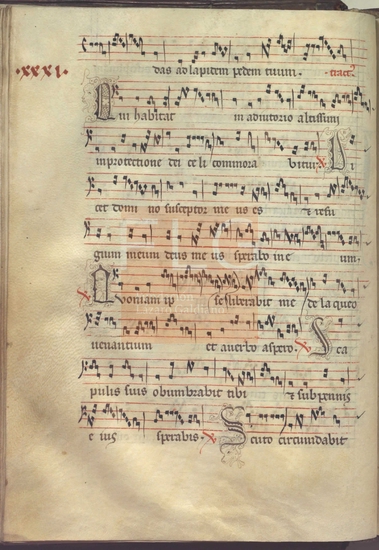 das ad lapidem pedem tuum. tract
.XXXI.
Qui habitat in adiutorio altissimi
in protectione dei celi commora bitur. Di
cet domi no susceptor me us es & refu
gium meum deus me us sperabo in e um.
Quoniam ip se liberabit me de la queo
uenantium et a uerbo aspero. Sca
pulis suis obumbrabit tibi & sub pennis
e ius sperabis. Scuto circumdabit